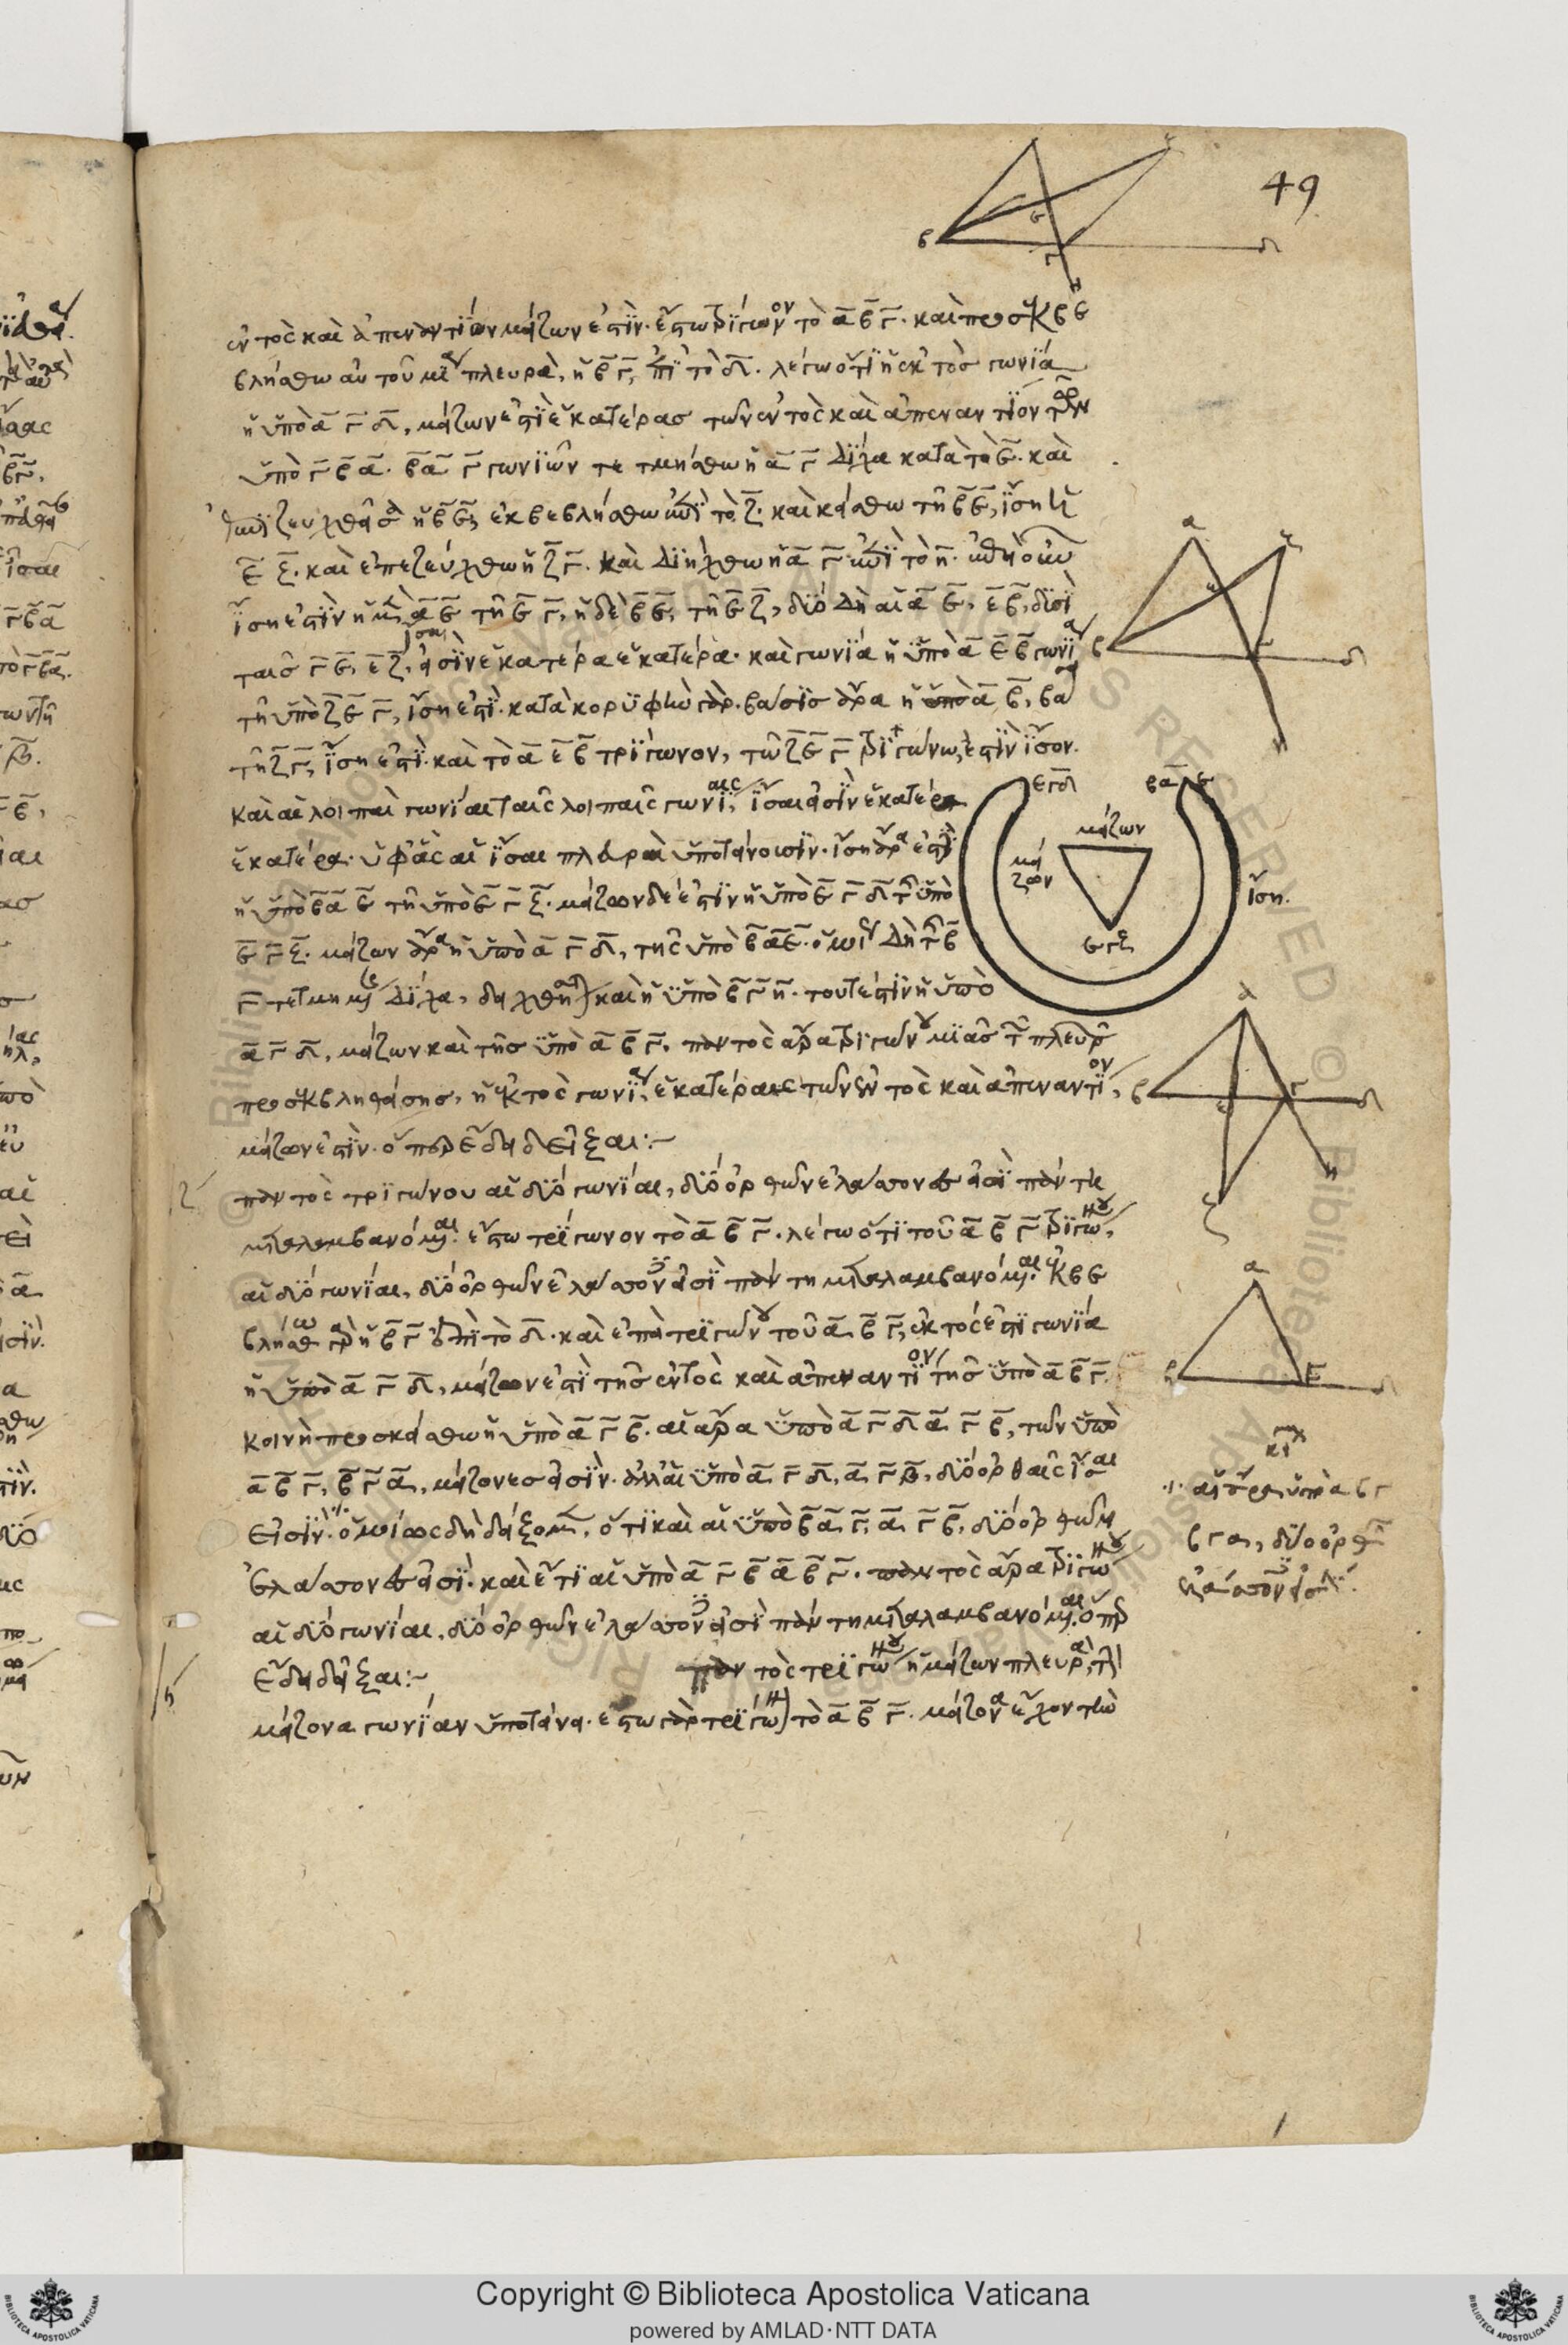 49
ἐντὸς καὶ ἀπεναντίον μείζων ἐστίν. ἔστω τρίγωνον τὸ α̅ β̅ γ̅. καὶ προσεκβε
βλήσθω αὐτοῦ μία πλευρὰ, ἡ β̅ γ̅, ἐπὶ τὸ δ̅. λέγω ὅτι ἡ ἐκτὸσ γωνία
ἡ ὑπὸ α̅ γ̅ δ̅, μείζων ἐστὶ ἑκατέρασ τῶν ἐντὸς καὶ ἀπεναντίον τῶν
ὑπὸ γ̅ β̅ α̅. β̅α̅ γ̅ γωνιῶν τετμήσθω ἡ α̅ γ̅ δίχα κατὰ τὸ ε̅. καὶ
ἐπιζευχθεῖσα ἡ β̅ε̅, ἐκβεβλήσθω ἐπὶ τὸ ζ̅. καὶ κείσθω τῆ β̅ε̅, ἴση ἡ
ε̅ ζ̅. καὶ ἐπεζεύχθω ἡ ζ̅γ̅. καὶ διήχθω ἡ α̅ γ̅ ἐπὶ τὸ η̅. ἐπεὶ οὖν
ἴση ἐστὶν ἡ μὲν α̅ε̅ τῆ ε̅ γ̅, ἡ δὲ β̅ε̅, τῆ ε̅ζ̅, δύο δὴ αἱ α̅ ε̅, ε̅β̅, δυσὶ
ταισ γ̅ε̅, ε̅ζ̅, ἴσαι εἰσὶν ἑκατέρα ἑκατέρα. καὶ γωνία ἡ ὑπὸ α̅ ε̅ β̅ γωνία
τῆ ὑπὸ ζ̅ε̅ γ̅, ἴση ἐστί. κατὰ κορυφὴν γάρ. βάσισ ἄρα ἡ α̅ β̅, βάσει
τῆ ζ̅γ̅, ἴση ἐστί. καὶ τὸ α̅ ε̅ β̅ τρίγωνον, τῶ ζ̅ε̅ γ̅ τριγώνω, ἐστὶν ἴσον.
καὶ αἱ λοιπαὶ γωνίαι ταῖς λοιπαῖς γωνίαις, ἴσαι εἰσὶν ἑκατέρα
ἑκατέρα. ὑφ᾽ ἃς αἱ ἴσαι πλευραὶ ὑποτείνουσιν. ἴση ἄρα ἐστὶ
ἡ ὑπὸ β̅α̅ ε̅ τῆ ὑπὸ ε̅ γ̅ ζ̅. μείζων δέ ἐστιν ἡ ὑπὸ ε̅ γ̅ δ̅ τῆς ὑπὸ
ε̅ γ̅ ζ̅. μείζων ἄρα ἡ ὑπὸ α̅ γ̅ δ̅, τῆς ὑπὸ β̅α̅ε̅. ὁμοίως δὴ τῆς β̅
γ̅ τετμημένης δίχα, δειχθήσεται καὶ ἡ ὑπὸ β̅γ̅η̅. τουτέστιν ἡ ὑπὸ
α̅ γ̅ δ̅, μείζων καὶ τῆσ ὑπὸ α̅ β̅ γ̅. παντὸς ἄρα τριγώνου μιᾶσ τῶν πλευρῶν
προσεκβληθείσησ, ἡ ἐκτὸς γωνία, ἑκατέρας τῶν ἐντὸς καὶ ἀπεναντίον,
μείζων ἐστίν. ὅπερ ἔδει δεῖξαι:~
παντὸς τριγώνου αἱ δύο γωνίαι, δύο ὀρθῶν ἐλάσσονές εἰσι πάντη
μεταλαμβανόμεναι. ἔστω τρίγωνον τὸ α̅ β̅ γ̅. λέγω ὅτι τοῦ α̅ β̅ γ̅ τριγώνου,
αἱ δύο γωνίαι, δύο ὀρθῶν ἐλάσσονές εἰσὶ πάντη μεταλαμβανόμεναι. ἐκβε
βλήσθω γὰρ ἡ β̅ γ̅ ἐπὶ τὸ δ̅. καὶ ἐπεὶ τριγώνου τοῦ α̅ β̅ γ̅, ἐκτός ἐστι γωνία
ἡ ὑπὸ α̅ γ̅ δ̅, μείζων ἐστὶ τῆσ ἐντὸς καὶ ἀπεναντίον τῆσ ὑπὸ α̅ β̅ γ̅.
κοινὴ προσκείσθω ἡ ὑπὸ α̅ γ̅ β̅. αἱ ἄρα ὑπὸ α̅ γ̅ δ̅ α̅ γ̅ β̅, τῶν ὑπὸ
α̅ β̅ γ̅, β̅ γ̅ α̅, μείζονεσ εἰσὶν. ἀλλ᾽ αἱ ὑπὸ α̅ γ̅ δ̅, α̅ γ̅ β̅, δύο ὀρθαῖς ἴσαι
εἰσίν. ὁμοίως δὴ δείξομεν, ὅτι καὶ αἱ ὑπὸ β̅α̅ γ̅, α̅ γ̅ β̅, δύο ὀρθῶν
ἐλάσσονές εἰσι. καὶ ἔτι αἱ ὑπὸ α̅ γ̅ β̅ α̅ β̅ γ̅. παντὸς ἄρα τριγώνου
αἱ δύο γωνίαι, δύο ὀρθῶν ἐλάσσονές εἰσὶ πάντη μεταλαμβανόμεναι. ὅπερ
ἔδει δεῖξαι:~ παντὸς τριγώνου ἡ μείζων πλευρὰ, τὴν
μείζονα γωνίαν ὑποτείνει. ἔστω γὰρ τρίγωνον τὸ α̅ β̅ γ̅. μείζονα ἔχον τὴν
εγδ
βαε
μείζων
μεί
ζων
ἴση.
εγζ
αἱ ἄρα ὑπὸ α β γ
β γ α, δύο ὀρθῶν
ἐλάσσονές εἰσιν.
Copyright © Biblioteca Apostolica Vaticana
powered by AMLAD·NTT DATA